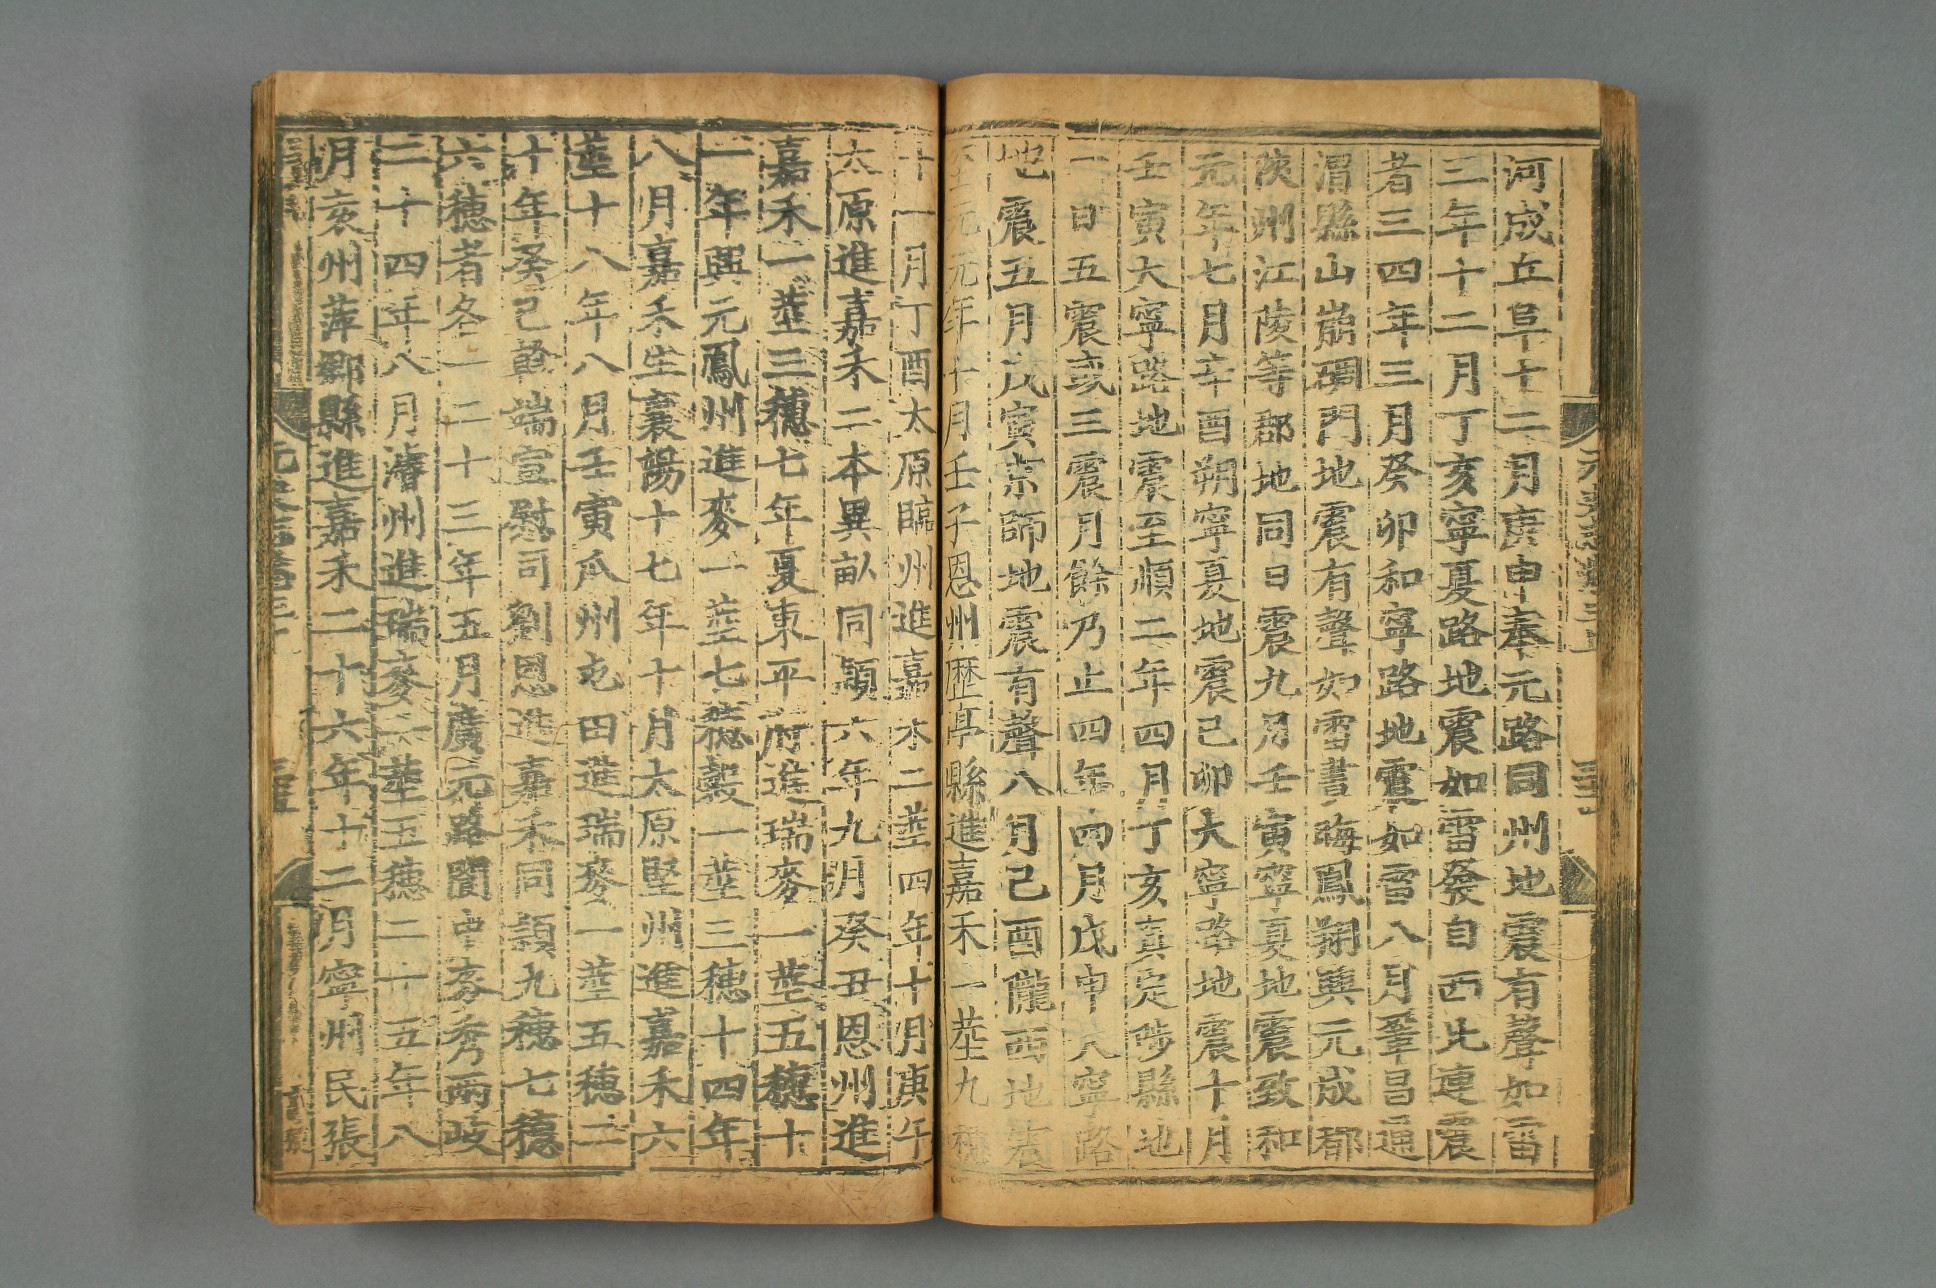 河成丘阜十二月庚申奉元路同州地震有聲如雷
三年十二月丁亥寧夏路地震如雷發自西北連震
者三四年三月癸卯和寧路地震如雷八月鞏昌通
渭縣山崩碉門地震有聲如雷晝晦鳳翔興元成都
陜州江陵等郡地同日震九月壬寅寧夏地震致和
元年七月辛酉朔寧夏地震己卯大寧路地震十月
壬寅大寧路地震至順二年四月丁亥真定陟縣地
一日五震或三震月餘乃止四年四月戊申大寧路
地震五月戊寅京師地震有聲八月己酉隴西地震
至元元年十月壬子恩州歷亭縣進嘉禾一莖九穗
年一月丁酉太原臨州進嘉禾二莖四年十月庚午
太原進嘉禾二本異畝同穎六年九月癸丑恩州進
嘉禾一莖三穗七年夏東平府進瑞麥一莖五穗十
一年興元鳳州進麥一莖七穗穀一莖三穗十四年
八月嘉禾生襄陽十七年十月太原堅州進嘉禾六
莖十八年八月壬寅瓜州屯田進瑞麥一莖五穗二
十年癸已斡端宣慰司劉恩進嘉禾同穎九穗七穗
六穗者各一二十三年五月廣元路閬中麥秀兩岐
二十四年八月濬州進瑞麥一莖五穗二十五年八
月亥州萍鄉縣進嘉禾二十六年十二月寧州民張
元史志卷三十